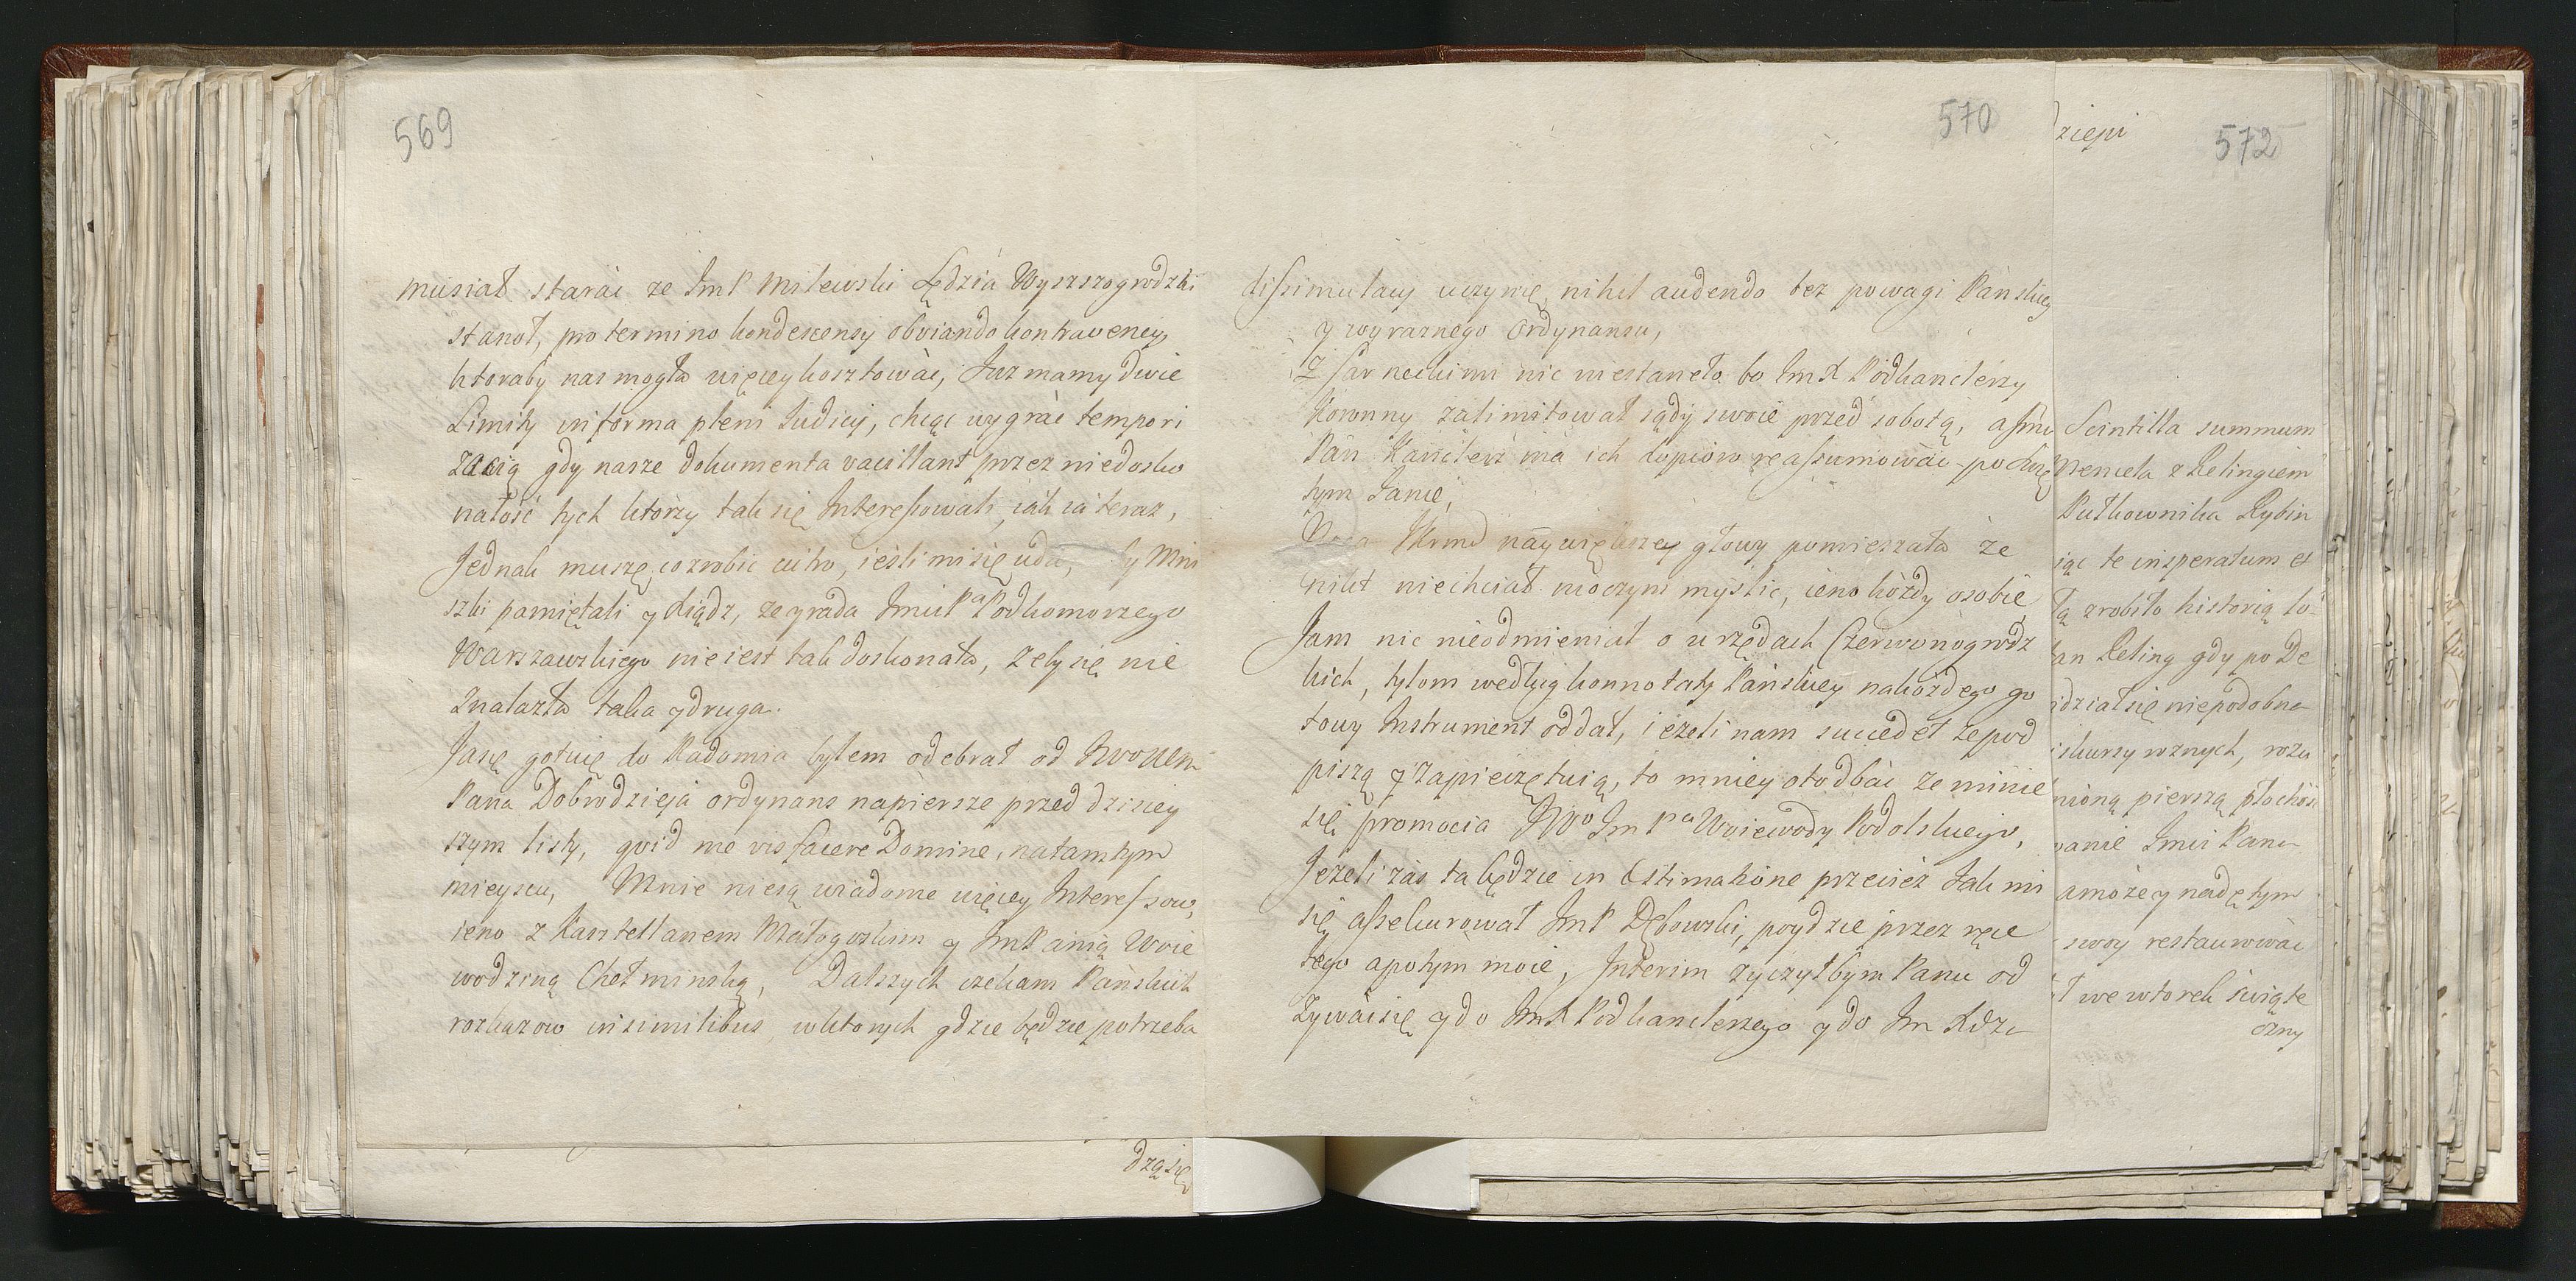 569
musiał starać ze Jmć P Milewski Sędzia Wyszszogrodzki
stanoł, pro termino kondescensy obviando kontravencyi
ktoraby nas mogła więcey kosztować, Juz mamy dwie
Limity in forma pleni Iudicij, chcąc wygrac tempori
zacią gdy nasze dokumenta vacillant przez niedosko
nałość tych ktorzy tak się Interessowali iak ia teraz,
Jednak muszę co zrobic cutro, iesli mi się uda, by Mni
szki pamiętali y Xiądz, ze y rada Jmci Pa Podkomorzego
Warszawskiego nie iest tak doskonała, zeby się nie
znalazła taka y druga.
Ja się gotuię do Radomia bylem odebrał od JWo Wem
Pana Dobrodzieja ordynans na piersze przed dzisiey
szym listy, quid me vis facere Domine, na tamtym
mieyscu, Mnie niesą wiadome więcey Interessow,
ieno z Kasztellanem Małogoskim y Jmć Panią Woie
wodziną Chełminską, Dalszych czekam Pańskich
rozkazow in similibus, w ktorych gdzie będzie potrzeba
570
dissimulacij uczynię, nihil audendo bez powagi Pańskiey
y wyraznego Ordynansu,
Z Sarneckimi nic niestaneło bo Jmć X Podkanclerzy
Koronny zalimitował sądy swoie przed sobotą, a Jmć
Pan Kanclerz ma ich dopioro reassumować po Swię
tym Janie,
naywiększey głowy pomieszała ze
nikt niechciał nioczym myslic, ieno kozdy osobie
Jam nic nieodmieniał o urzędach Czerwonogrodz
kich, tylom według konnotaty Pańskiey nakozdego go
towy Instrument oddał, iezeli nam succedet ze pod
piszą y zapieczętuią, to mniey oto dbać ze minie
się promocia JWo Jm Pa Woiewody Podolskiego,
Jezeli zaś ta będzie in Estimatione przeciez Jak mi
się assekurował Jmć P Dębowski, poydzie przez ręce
Jego apotym moie, Interim zyczyłbym Panu od
zywać się y do Jmć X Podkanclerzego y do Jm Xdza
dzą się
ziepi
572
Scintilla summum
Weneta z Relingiem
Pułkownika Rybin
iąc te insperatum et
łą zrobiło historią to
an Reling gdy po De
idział się niepodobna
iskursy roznych, rozu
nioną pierszą płochoś
wanie Jmci Pana
amoze y nadętym
swoy restaurować
ł we wtorek świąte
czny